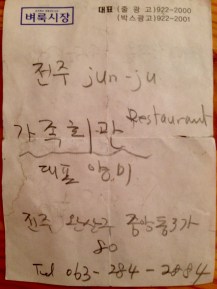 벼룩시장
대표 (줄 광고)922-2000
(박스광고)922-2001
전주 jun-ju
가족회관 Restaurant
대표 양미
전주 완산구 중앙동3가
80
Tel 063-284-2884